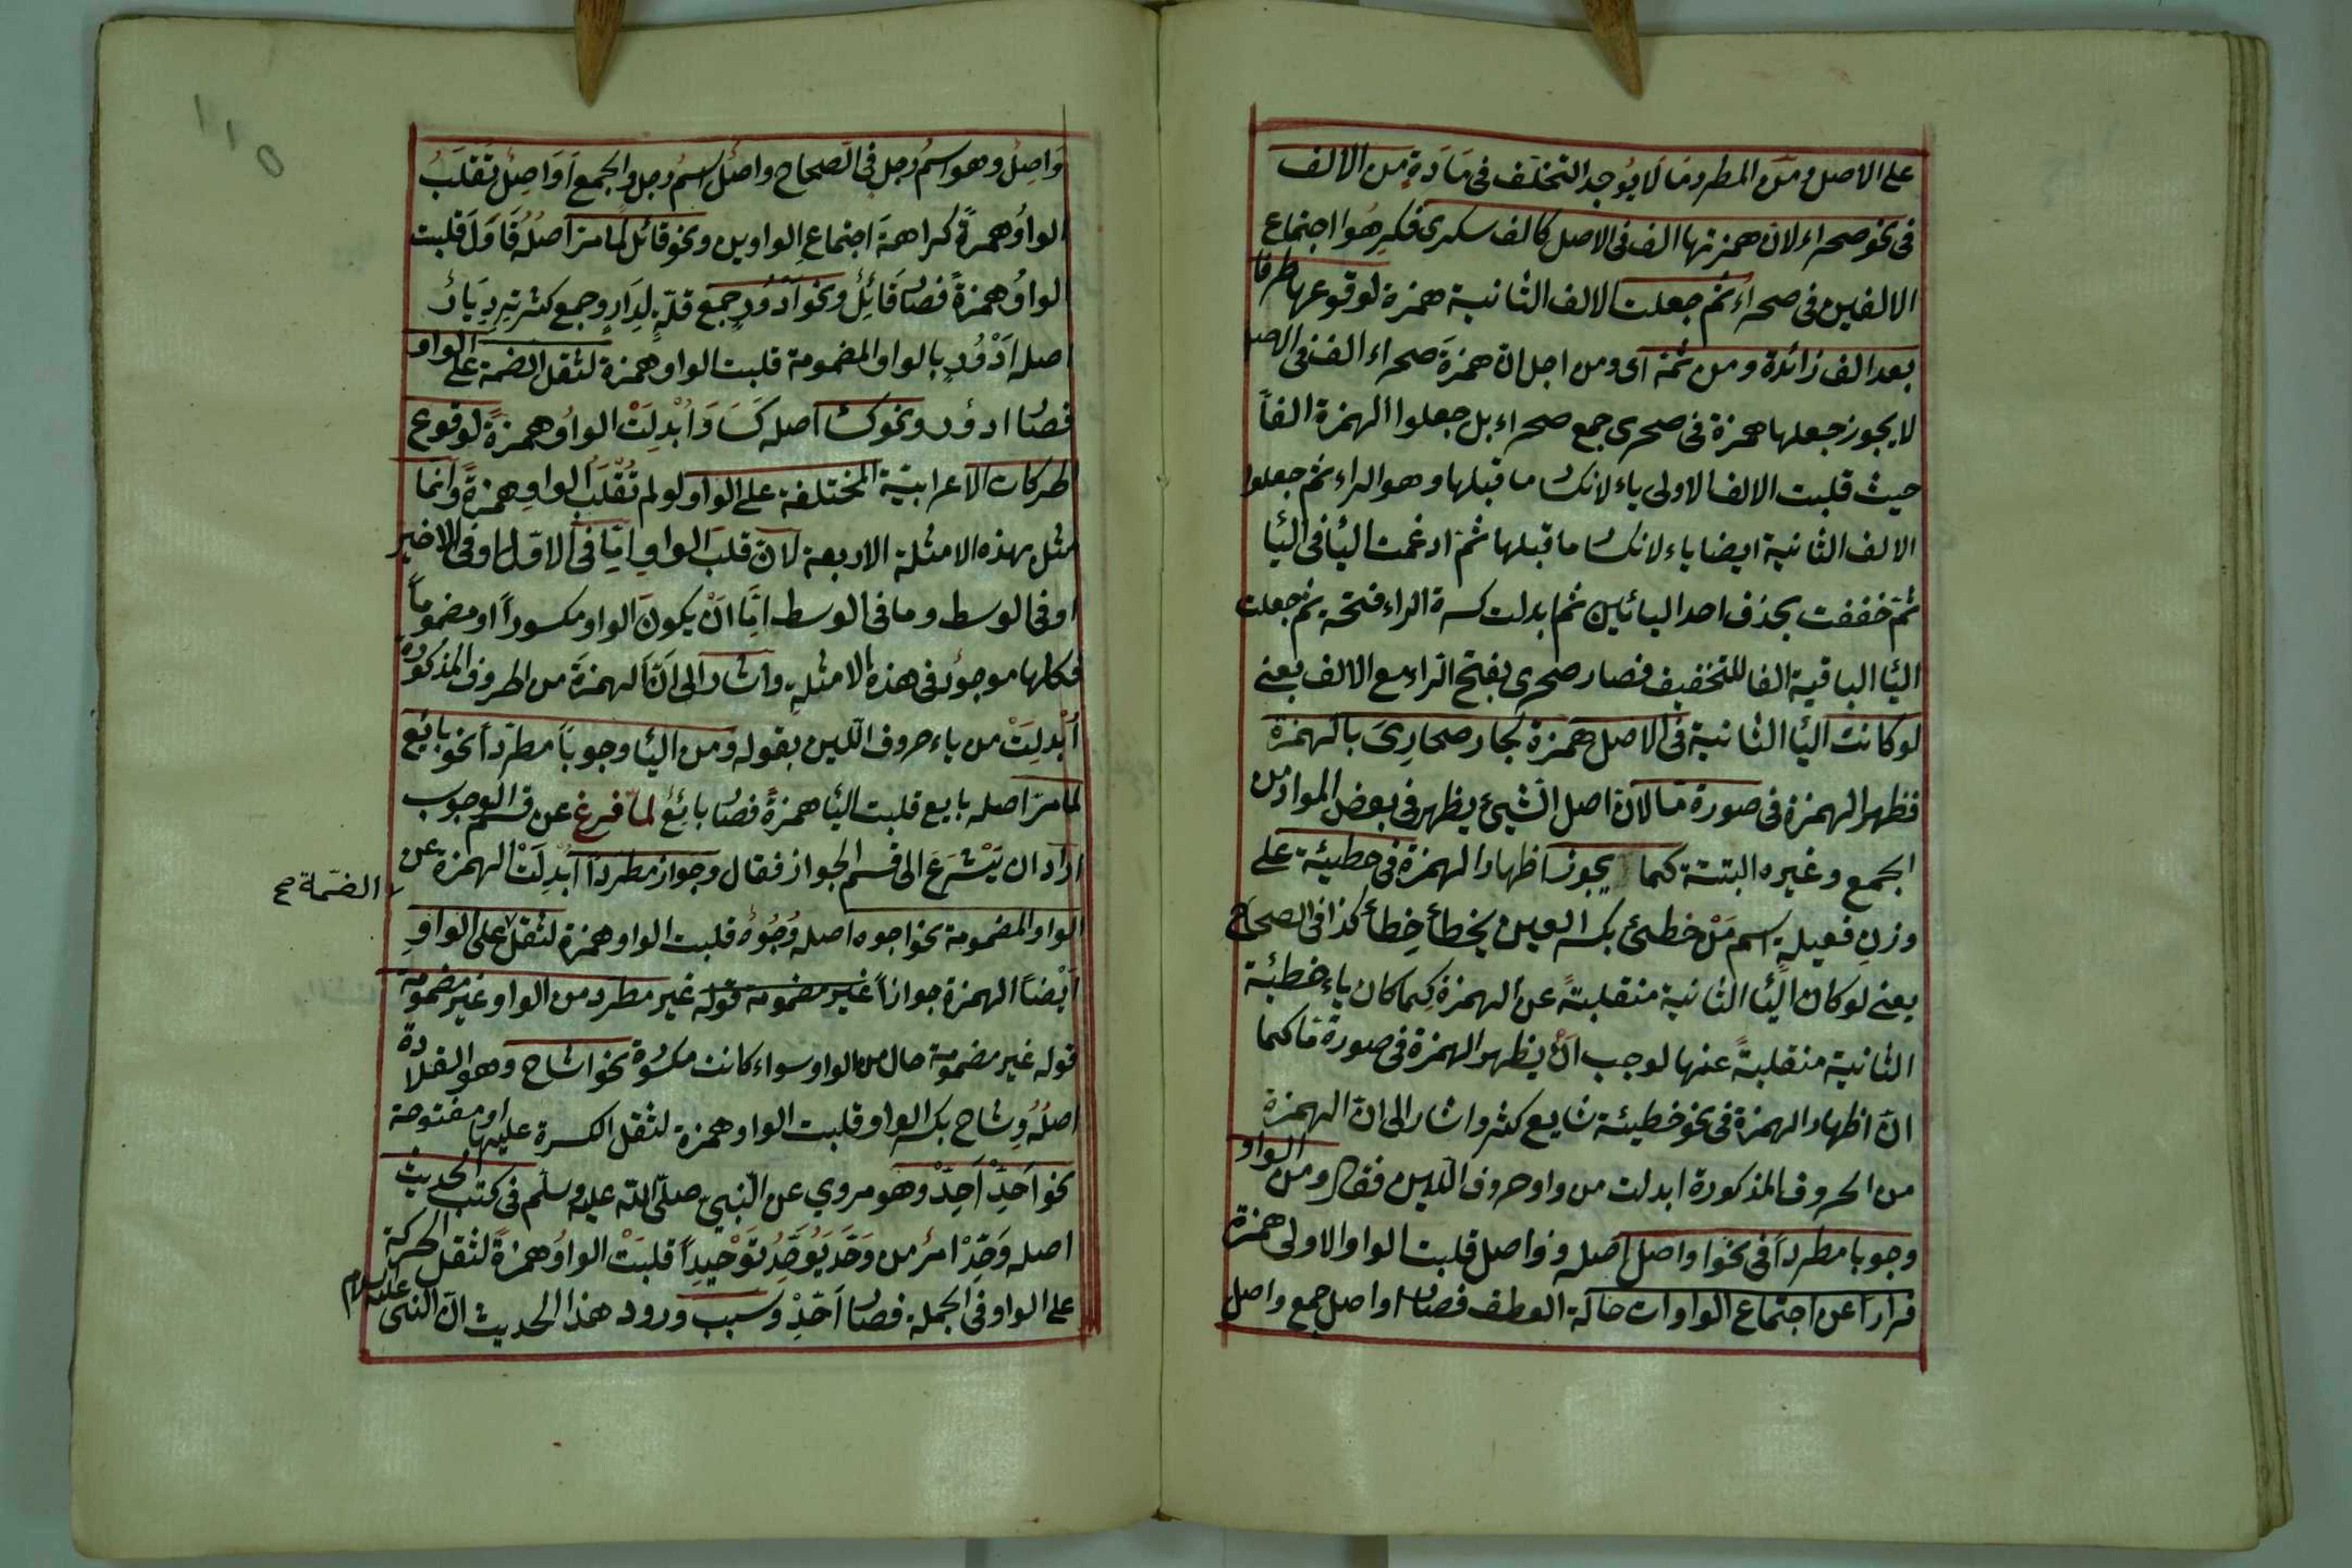 على الاصل ومن المطرد ما لا يوجد التخلف فى مادة من الالف
فى نحو صحراء لان همزتها الف فى الاصل كالف سكرى فكرهوا اجتماع
الالفين فى صحراء ثم جعلت الالف الثانية همزة لوقوعها طرفا
بعد الف زائدة ومن ثمة اى ومن اجل ان همزة صحراء الف فى الاصل
لا يجوز جعلها همزة فى صحرى جمع صحراء بل جعلوا الهمزة الفاً
حيث قلبت الالف الاولى ياء لانكسار ما قبلها وهو الراء ثم جعلوا
الالف الثانية ايضا ياء لانكسار ما قبلها ثم ادغمت اليا فى اليا
ثم خففت بحذف احد اليائين ثم ابدلت كسرة الراء فتحة ثم جعلت
اليا الباقية الفا للتخفيف فصار صحرى بفتح الراء مع الالف يعنى
لو كانت اليا الثانية فى الاصل همزة لجاز صحارئ بالهمزة
فظهر الهمزة فى صورة ما لان اصل الشيئ يظهر فى بعض المواد من
الجمع وغيره البتة كما يجوز اظهار الهمزة فى خطيئة على
وزن فعيلة اسم من خطئ بكسر العين يخطأ خطأ كذا فى الصحاح
يعنى لو كان اليا الثانية منقلبة عن الهمزة كما كان ياء خطيئة
الثانية منقلبة عنها لوجب ان يظهر الهمزة فى صورة ما كما
ان اظهار الهمزة فى نحو خطيئة شايع كثير واشار الى ان الهمزة
من الحروف المذكورة ابدلت من واو حروف اللين فقال ومن الواو
وجوبا مطرداً فى نحو اواصل اصله وواصل قلبت الواو الاولى همزة
فرارا عن اجتماع الواوات حالة العطف فصار اواصل جمع واصل
وَاصِل وهو اسم رجل فى الصحاح واصل اسم رجل والجمع اَوَاصِل تقلب
الواو همزة كراهة اجتماع الواوين ونحو قائل لما مر اصله قَاوَلَ قلبت
الواو همزة فصار قائل ونحو ادؤر جمع قلة لدار وجمع كثرته ديار
اصله ادْوُر بالواو المضمومة قلبت الواو همزة لثقل الضمة على الواو
فصار ادؤر ونحو كساء اصله كساو ابدلت الواو همزة لوقوع
الحركات الاعرابية المختلفة على الواو لو لم تقلب الواو همزة وانما
مثل بهذه الامثلة الاربعة لان قلب الواو اما فى الاول او فى الاخير
او فى الوسط وما فى الوسط اما ان يكون الواو مكسوراً او مضموماً
فكلها موجود فى هذه الامثلة واشار الى ان الهمزة من الحروف المذكورة
ابدلت من ياء حروف اللين بقوله ومن اليا وجوباً مطرداً نحو بائع
لما مر اصله بايع قلبت اليا همزة فصار بائع لما فرغ عن قسم الوجوب
اراد ان يشرع الى قسم الجواز فقال وجواز مطردا ابدلت الهمزة عن
الواو المضمومة نحو اجوه اصله وجوه قلبت الواو همزة لثقل على الواو
الضمة صح
ايضا الهمزة جوازاً غير مضمومة قوله غير مطرد من الواو غير مضمومة
قوله غير مضمومة حال من الواو سواء كانت مكسورة نحو اشاح وهو القلادة
اصله وشاح بكسر الواو قلبت الواو همزة لثقل الكسرة عليها او مفتوحة
نحو اَحِّدْ اَحِّدْ وهو مروي عن النبي صلى الله عليه وسلم فى كتب الحديث
اصله وَحِّدْ امر من وَحَّدَ يُوَحِّدُ تَوْحيداً قلبت الواو همزة لثقل الحركة
على الواو فى الجملة فصار اَحِّدْ وسبب ورود هذا الحديث ان النبى عليه السلام